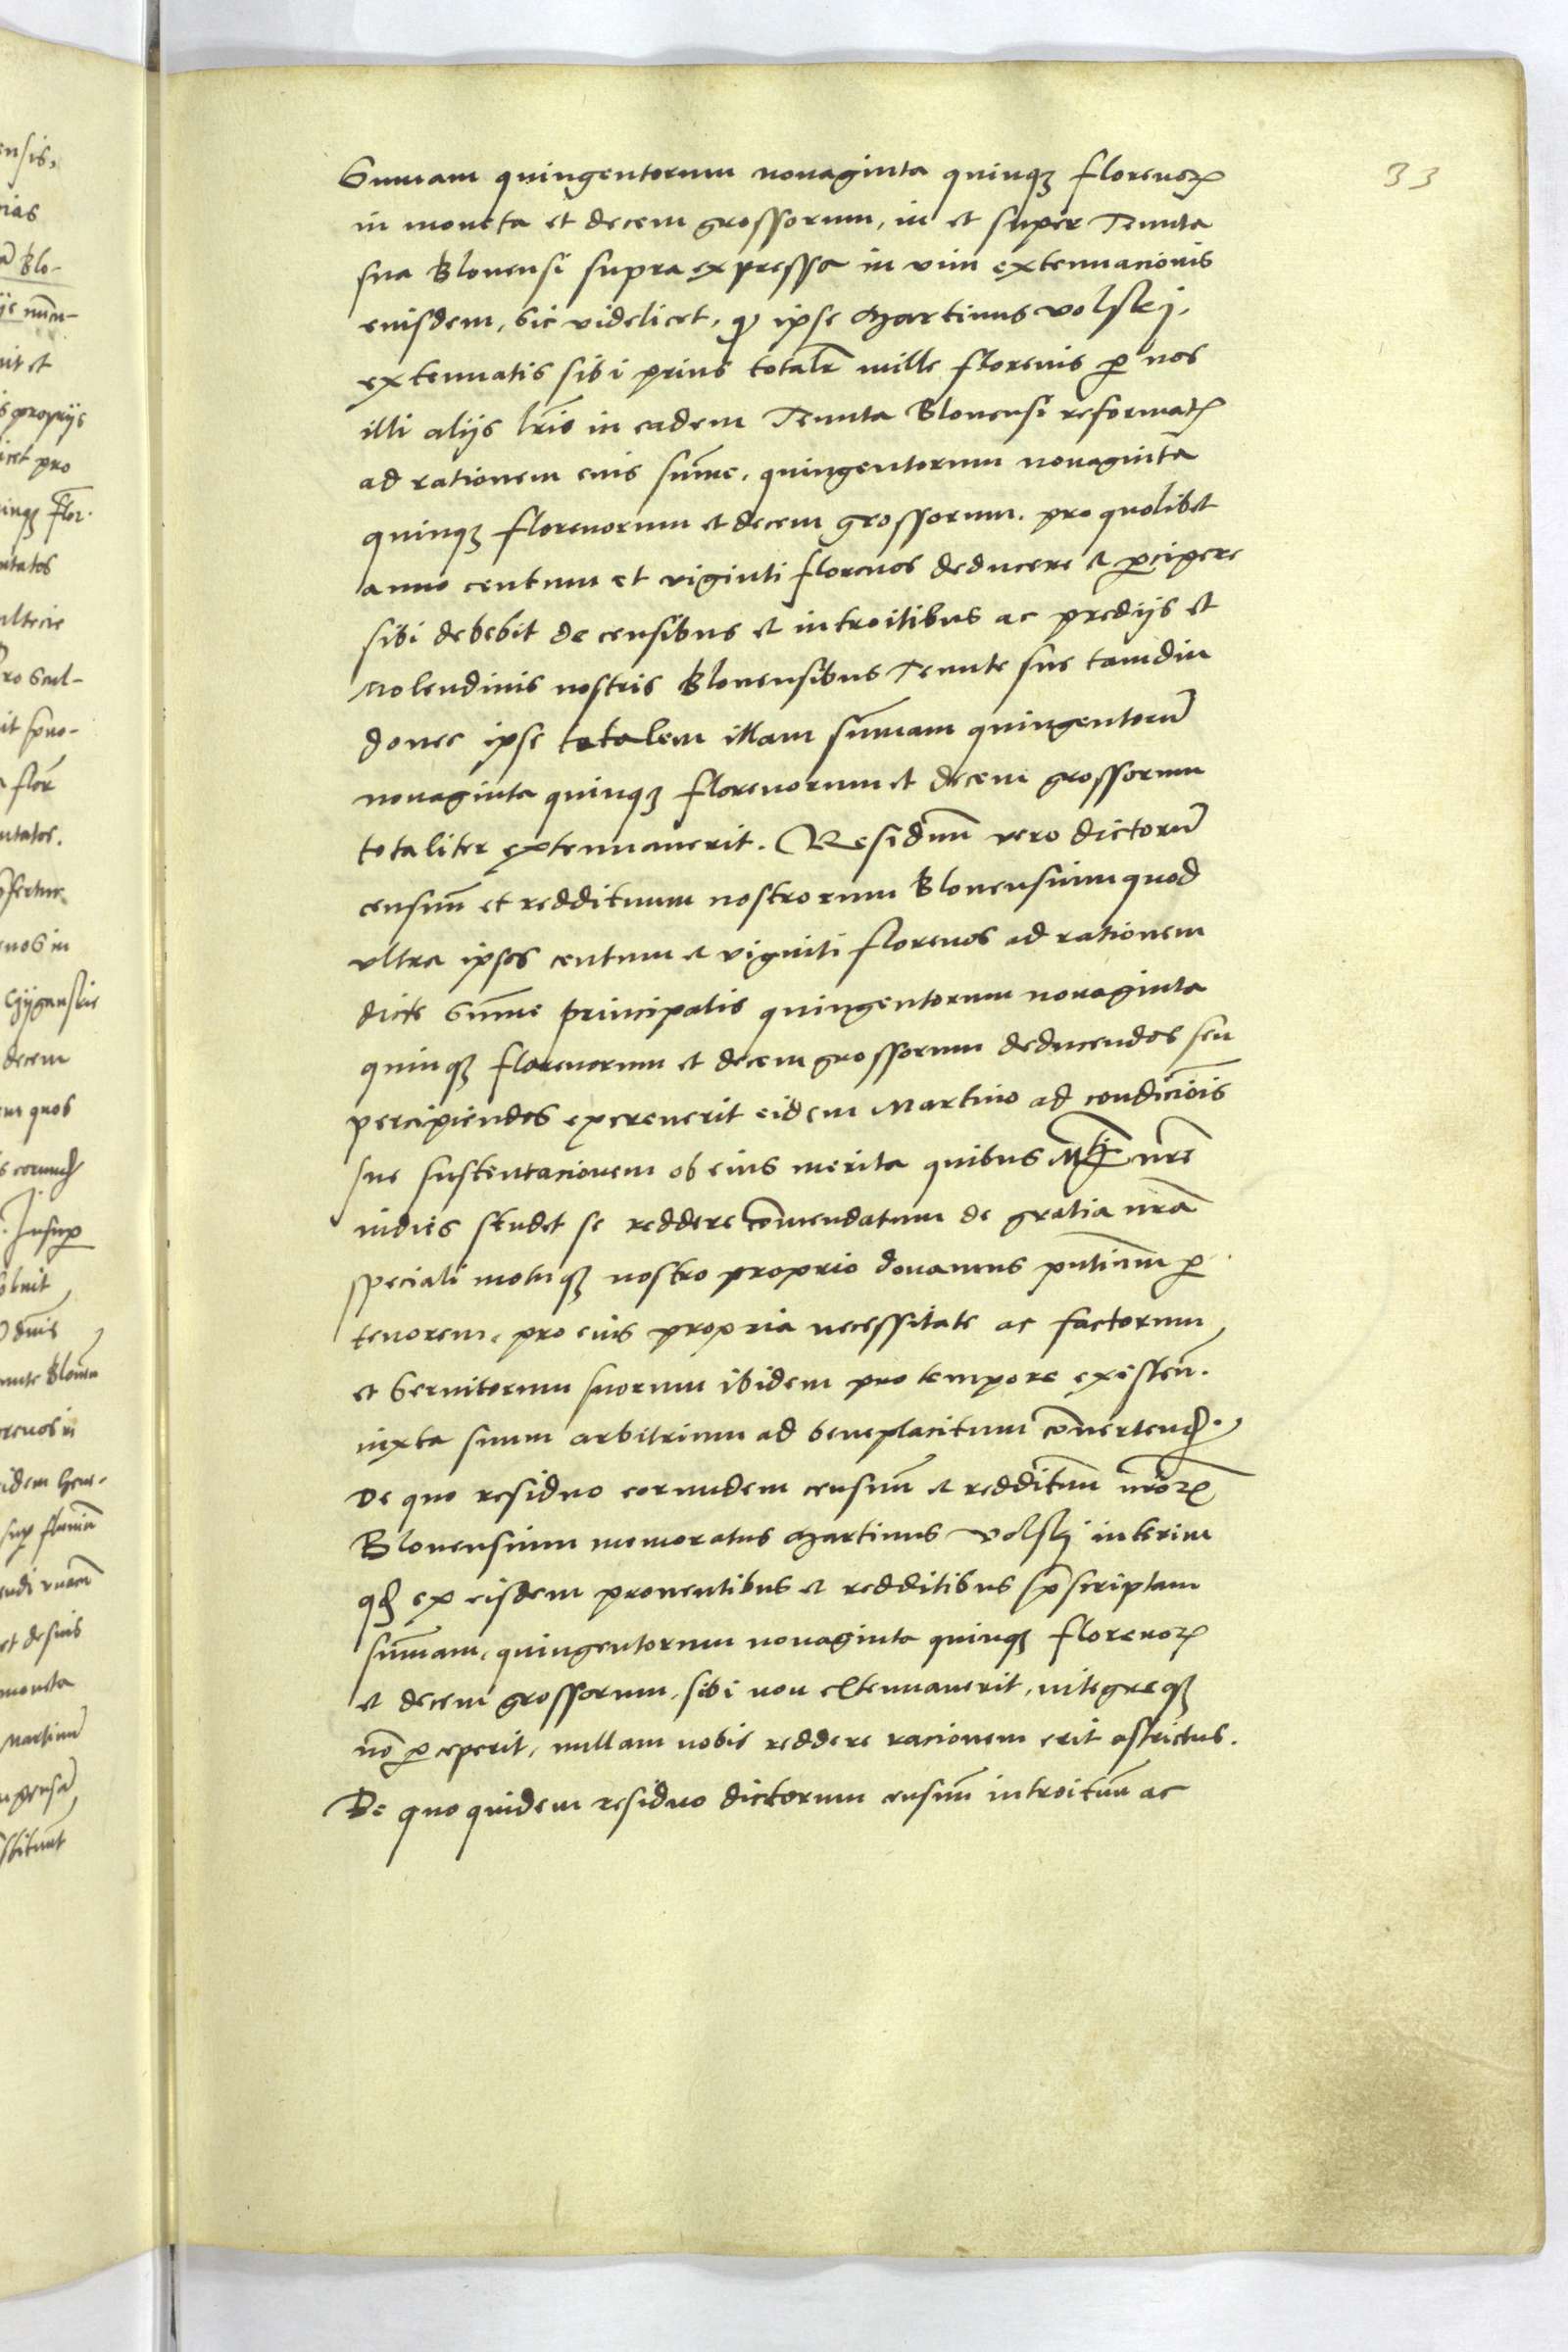 33
Sum̄am quingentorum nonaginta quinqꝫ florenoꝝ
in moneta et decem grossorum, in et super Tenuta
sua Blonensi supra expressa in vim extenuacionis
euisdem, Sic videlicet, ꝙ ipse Martinus Volskj,
extenuatis sibi prius totalr̄ mille florenis ꝑ nos
illi alijs lr̄is in eadem Tenuta Blonensi reformatꝝ
ad rationem eius sum̄e, quingentorum nonaginta
quinqꝫ florenorum et decem grossorum, pro quolibet
anno centum et viginti florenos deducere et ꝑcipere
sibi debebit de censibus et introitibus ac predijs et
Molendinis nostris Blonensibus Tenute sue tamdiu
donec ipse totalem illam sum̄am quingentorū
nonaginta quinqꝫ florenorum et decem grossorum
totaliter extenuauerit. Residuū vero dictorū
censuū et reddituum nostrorum Blonensium quod
vltra ipsos centum et viginti florenos ad rationem
dicte Sum̄e principalis quingentorum nonaginta
quinqꝫ florenorum et decem grossorum deducendos seu
percipiendos excreuerit eidem Martino ad condicōis
sue sustentacionem ob eius merita quibus Mti nr̄e
indies studet se reddere com̄endatum de gratia nr̄a
speciali motuqꝫ nostro proprio donamus pn̄tium ꝑ
tenorem, pro eius propria necessitate ac factorum
et Seruitorum suorum ibidem pro tempore existen̄.
iuxta suum arbitrium ad beneplacitum conuertend̄.
De quo residuo eorumdem censuū et reddituū nr̄oꝝ
Blonensium memoratus Martinus Volskj interim
qd̄ ex eisdem prouentibus et redditibus sp̄rascriptam
sum̄am, quingentorum nonaginta quinqꝫ florenoꝝ
et decem grossorum, sibi non extenuauerit, integreqꝫ
nō ꝑceperit, nullam nobis reddere racionem erit astrictus.
De quo quidem residuo dictorum censuū introituū ac